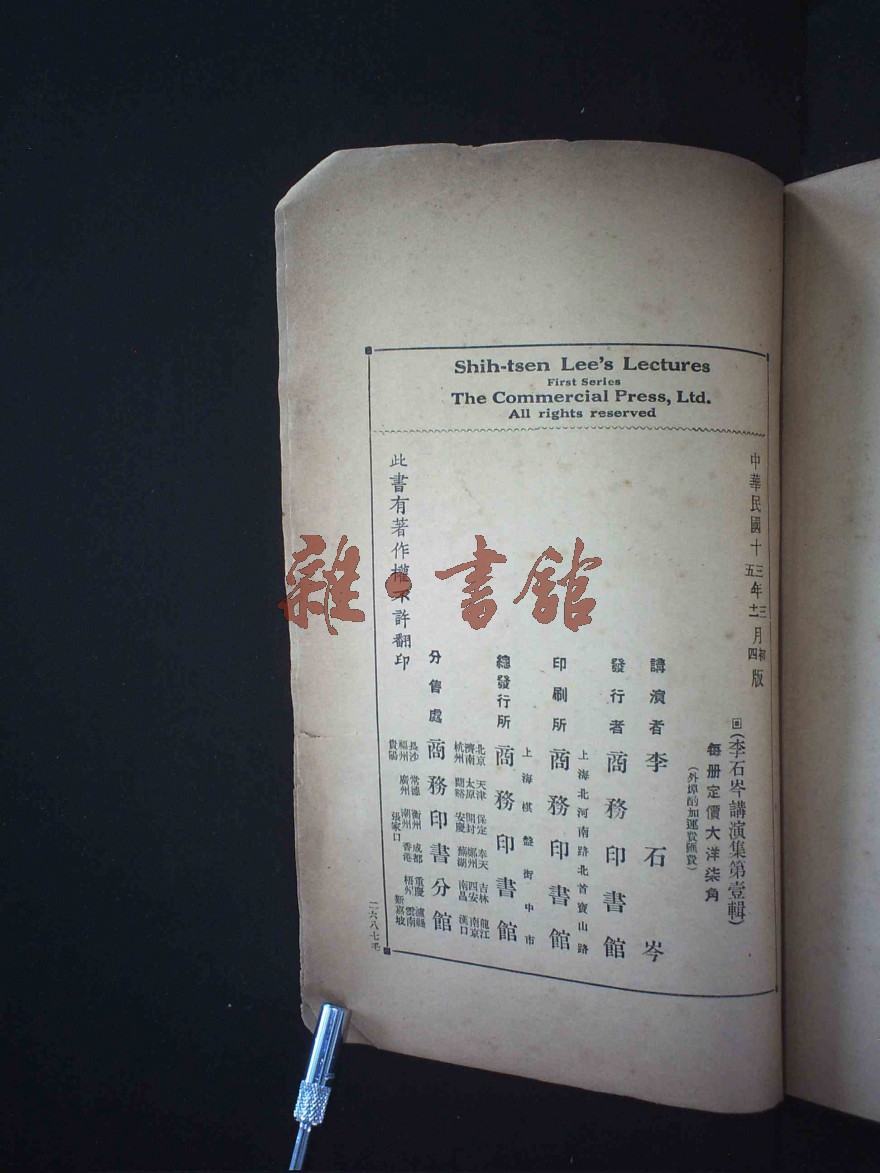 Shih-tsen Lee's Lectures
First Series
The Commercial Press, Ltd.
All rights reserved
中華民國十三年三月初版
五年十二月四版
回(李石岑講演集第壹輯)
每册定價大洋柒角
(外埠酌加運費匯費)
講演者 李石岑
發行者 商務印書館
上海北河南路北首寶山路
印刷所 商務印書館
上海棋盤街中市
總發行所 商務印書館
北京 天津 保定 奉天 吉林 龍江
濟南 太原 開封 鄭州 西安 南京
杭州 蘭谿 安慶 蕪湖 南昌 漢口
分售處 商務印書分館
長沙 常德 衡州 成都 重慶 瀘縣
福州 廣州 潮州 香港 梧州 雲南
貴陽 張家口 新嘉坡
此書有著作權不許翻印
二六八七毛
雜·書館